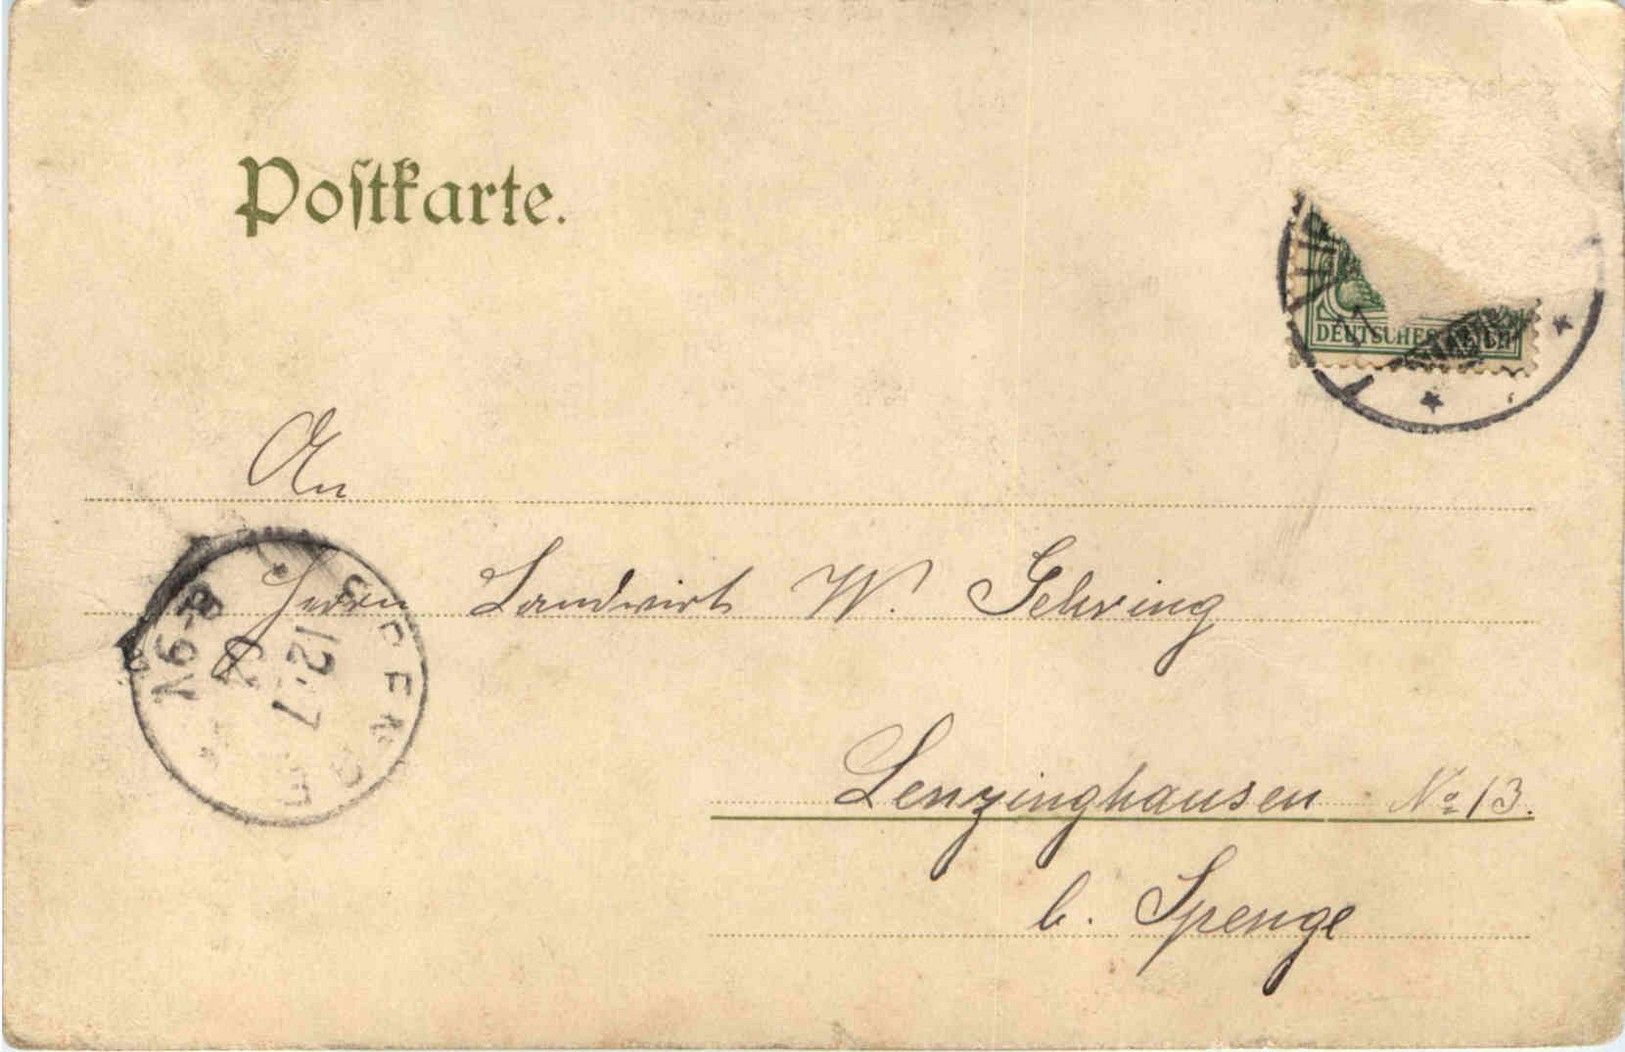 Poſtkarte.
DEUTSCHES REICH
An
Herrn Landwirt W. Gehring
Lenzinghausen No 13.
b. Spenge
SPENGE
12.7